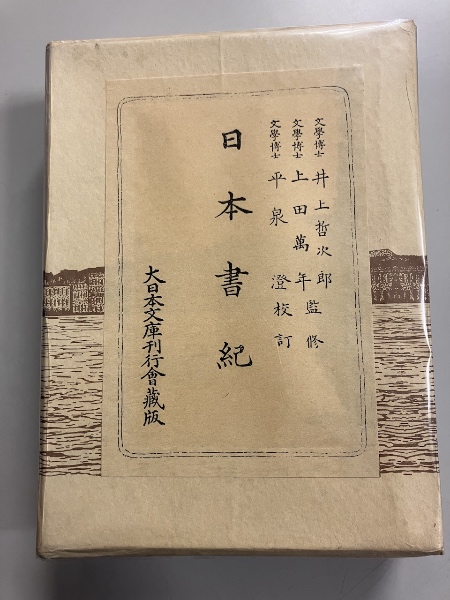 文學博士 井上哲次郎
文學博士 上田萬年監修
文學博士 平泉澄校訂
日本書紀
大日本文庫刊行會藏版